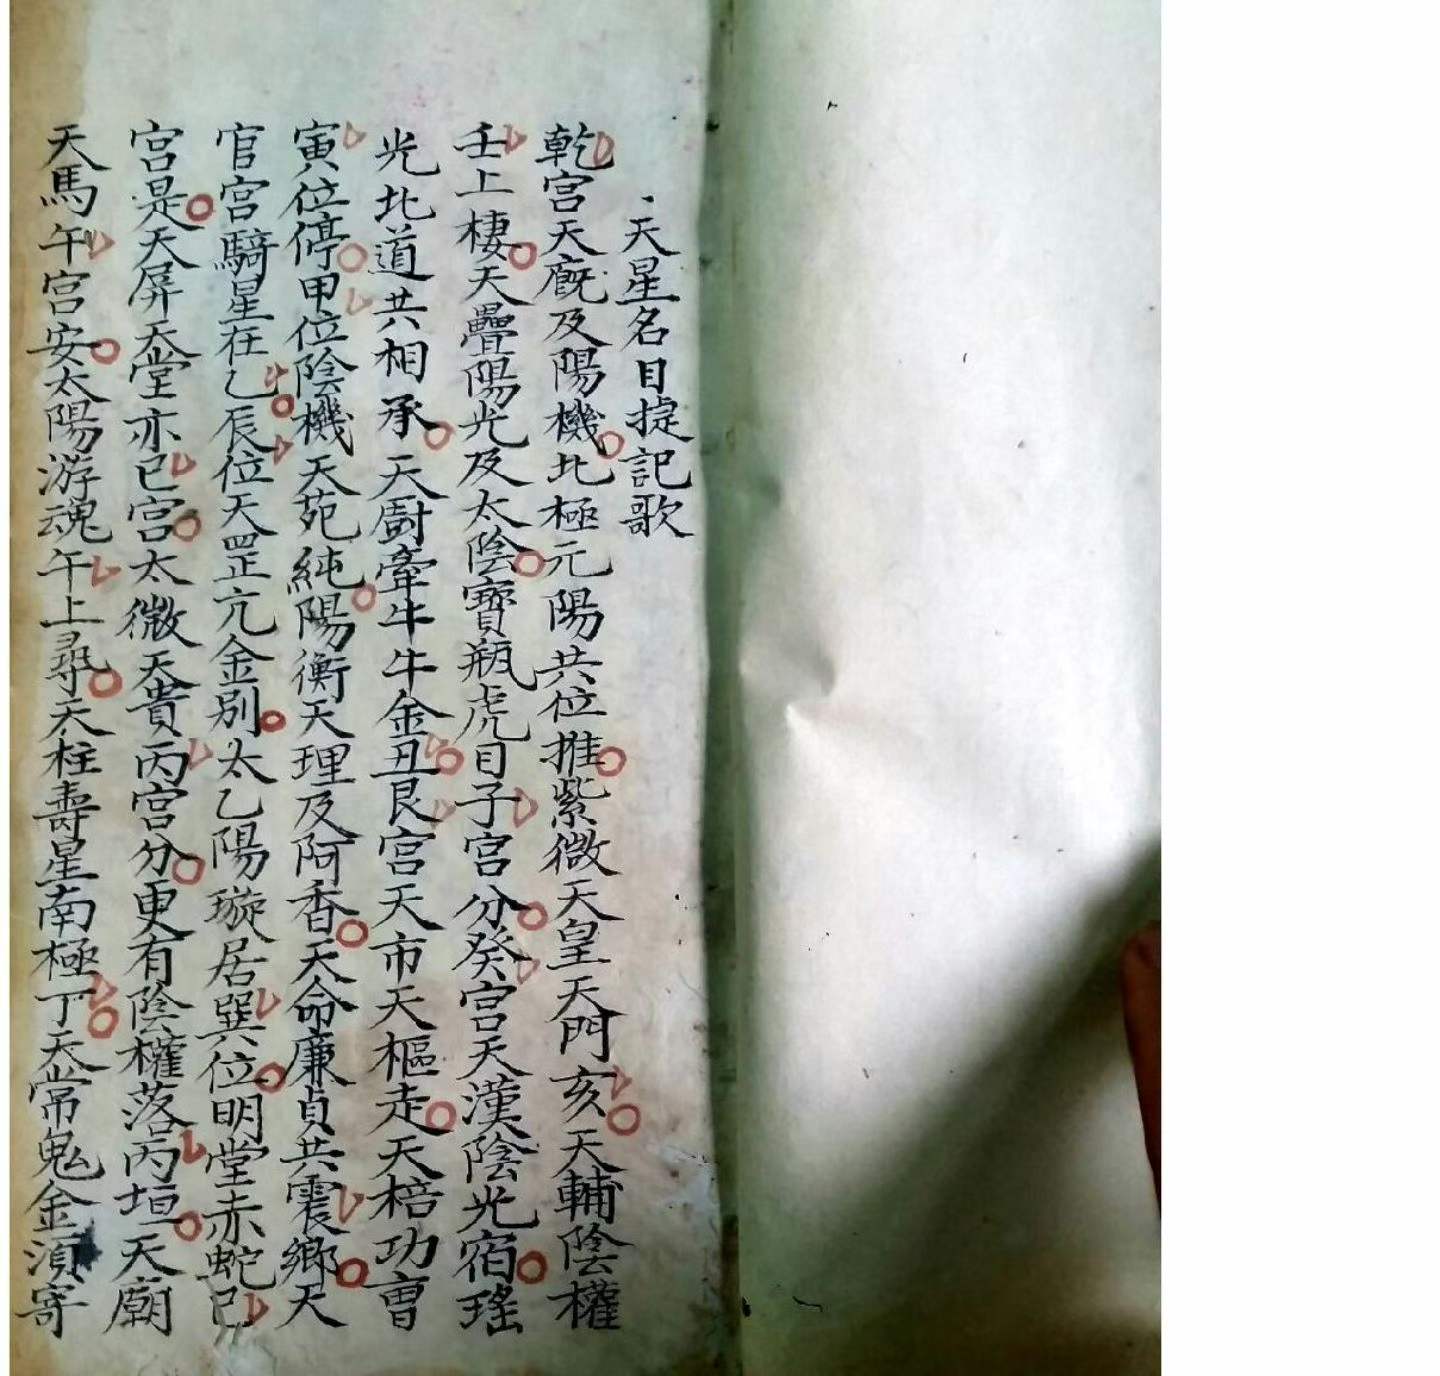 天星名目捷記歌
乾宮天廐及陽機北極元陽共位推紫微天皇天門亥天輔陰權
壬上棲天疊陽光及太陰寶瓶虎目子宮分癸宮天漢陰光宿瑤
光北道共相承天廚牽牛牛金丑艮宮天市天樞走天棓功曹
寅位停甲位陰機天苑純陽衡天理及阿香天命廉貞共震鄉天
官宮騎星在乙辰位天罡亢金別太乙陽璇居巽位明堂赤蛇巳
宮是天屏天堂亦巳宮太微天貴丙宮分更有陰權落丙垣天廟
天馬午宮安太陽游魂午上尋天柱壽星南極丁天常鬼金須寄